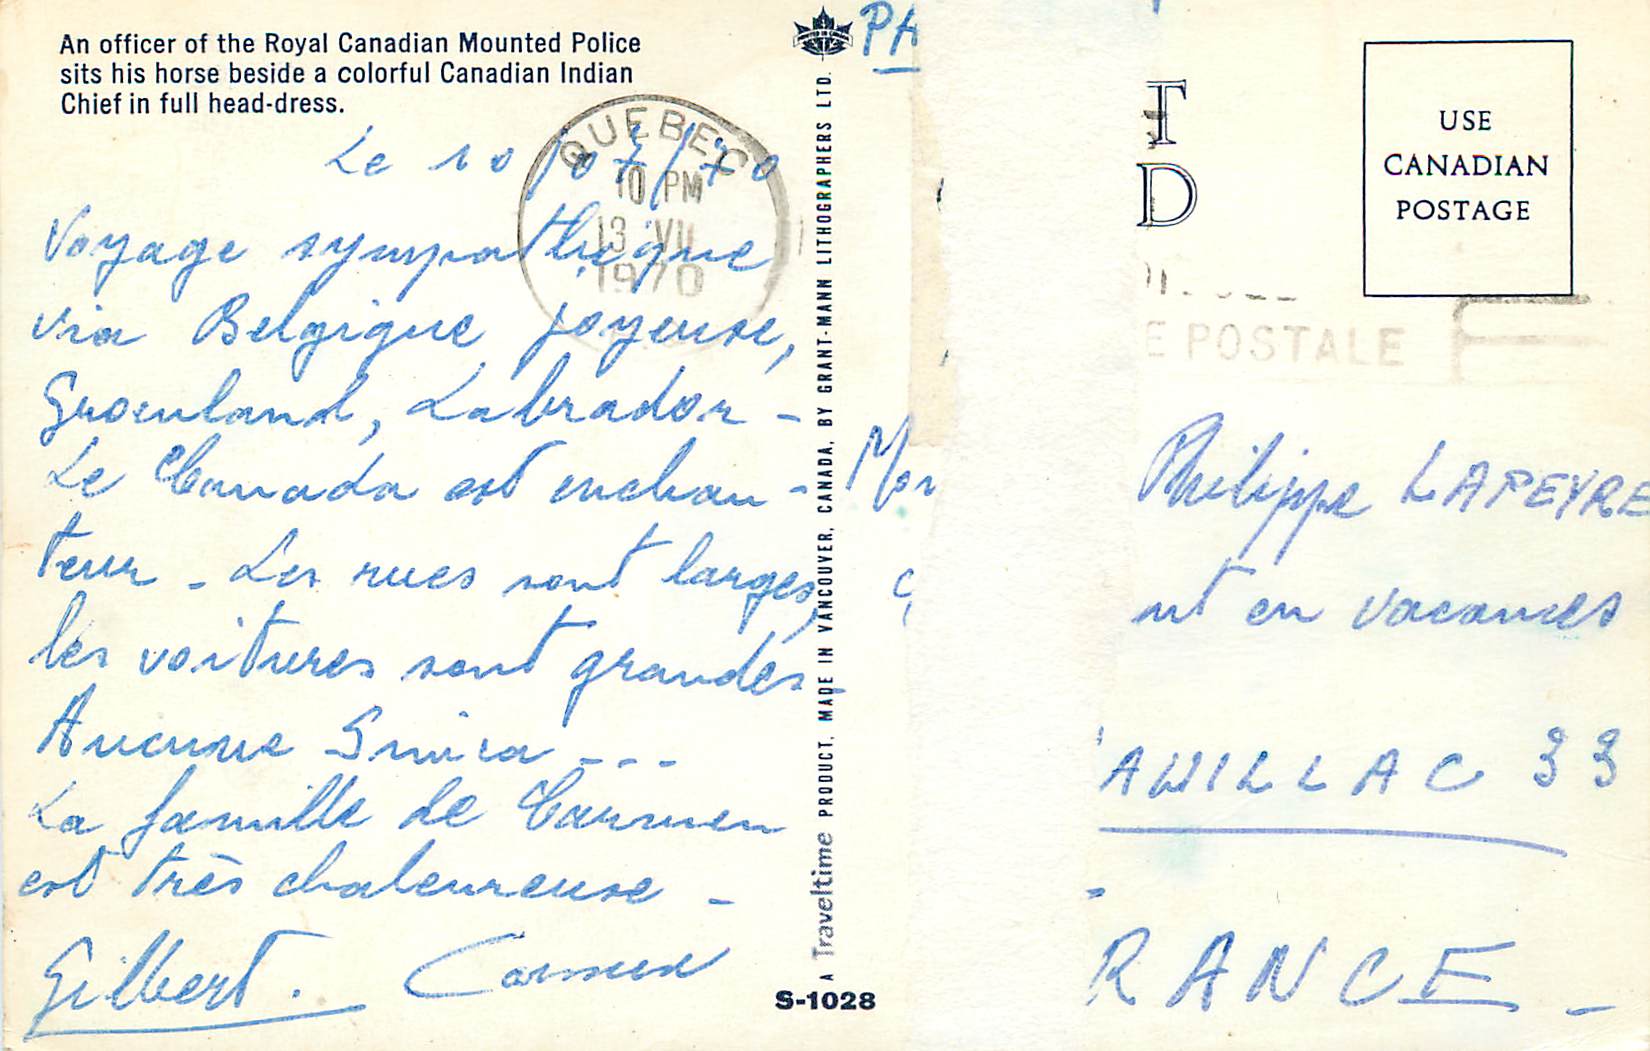 An officer of the Royal Canadian Mounted Police
sits his horse beside a colorful Canadian Indian
Chief in full head-dress.
Le 10/07/70
Voyage sympathique
via Belgique joyeuse,
Groenland, Labrador -
Le Canada est enchan-
teur - Les rues sont larges,
les voitures sont grandes -
Aucune Simca ---
La famille de Carmen
est très chaleureuse -
Gilbert. Carmen
QUEBEC
10 PM
13 VII
1970
A Traveltime PRODUCT. MADE IN VANCOUVER, CANADA, BY GRANT-MANN LITHOGRAPHERS LTD.
S-1028
PA
T
D
USE
CANADIAN
POSTAGE
E POSTALE
Mon
Philippe LAPEYRE
nt en vacances
AUILLAC 33
RANCE -